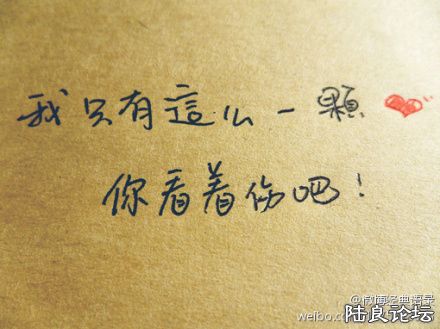 我只有這么一顆
你看着伤吧！
@微博经典语录
weibo.c
陆良论坛